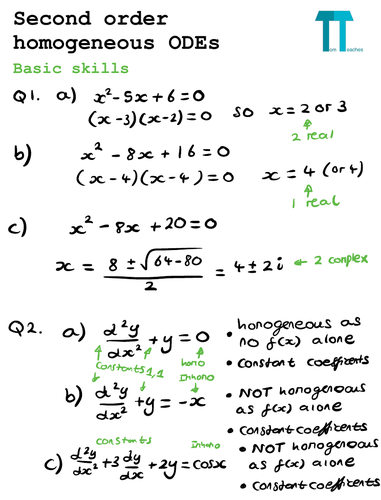 Second order
homogeneous ODEs
Tom Teaches
Basic skills
Q1. a) x²-5x+6=0
(x-3)(x-2)=0 so x=2 or 3
2 real
b) x²-8x+16=0
(x-4)(x-4)=0 x=4 (or 4)
1 real
c) x²-8x+20=0
x = (8 ± √(64-80))/2 = 4±2i ← 2 complex
Q2. a) d²y/dx² + y = 0
• homogeneous as
no f(x) alone
• constant coefficients
constants 1,1 homo
Inhomo
b) d²y/dx² + y = -x
• NOT homogenous
as f(x) alone
• constant coefficients
constants Inhomo
c) d²y/dx² + 3 dy/dx + 2y = cosx
• NOT homogenous
as f(x) alone
• constant coefficients